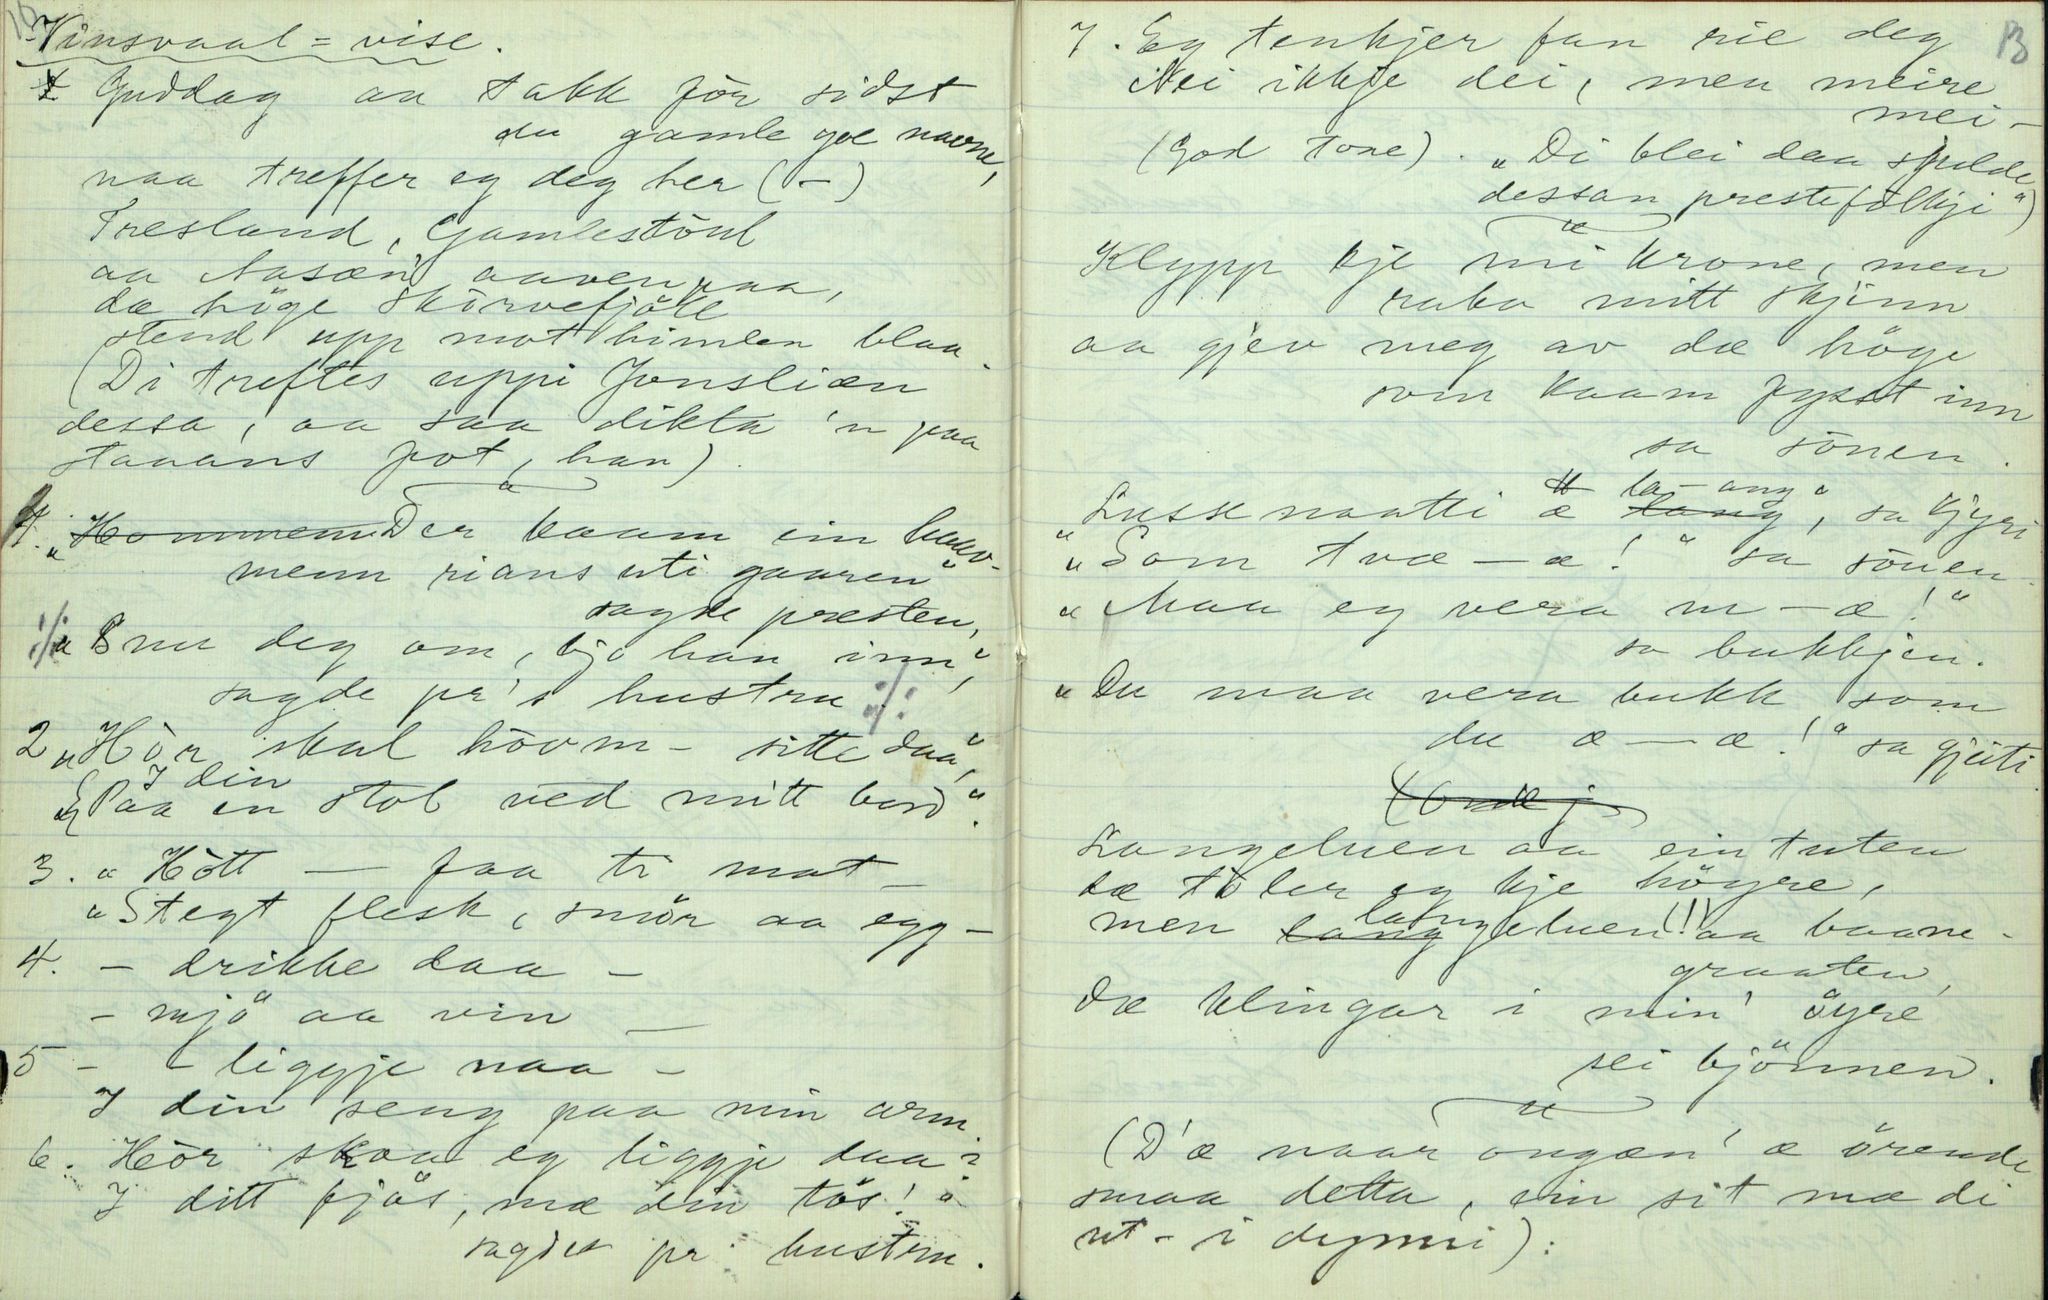 Vinsvaal-vise.
1 Guddag aa takk før sidst
du gamle goe navne,
naa treffer eg deg her (-)
Tresland, Gamlestöul
aa Nasæn' aavenpaa,
dæ höge Skörvefjöll
stend upp mot himlen blaa.
(Di treftes uppi Jonsliæn
dessa, aa saa dikta 'n paa
staaans fot, han).
1. "Hommem Der kaam ein
menn rians uti gaaren"
sagde presten,
"Snu deg om, bjo han inn",
sagde pr's hustru
2 "Hör skal hövm - sitte daa",
I din
"Paa en stol ved mitt bord".
3. "Hött - faa ti mat -
"Stegt flesk, smör aa egg -
4. - drikke daa -
- mjö aa vin -
5 - - liggje naa -
I din seng paa min arm
6. Hör skaa eg liggje daa?
I ditt fjös, mæ din tös!"
sagde pr. hustru.
13
7. Eg tenkjer fan rie deg
Nei ikkje dei, men meire
mei -
(God tone). "Di blei daa spelde
dessan prestefolkji")
Klypp kje mi krone, men
raka mitt skjinn
aa gjev meg av dæ höge
som kaam fysst inn
sa sönen.
la-ang"
"Lussenaatti æ lang, sa kjyri
"Som tvæ-æ!" sa sönen
"Maa eg vera m-æ!"
sa bukkjen.
"Du maa vera bukk som
du æ-æ!" sa gjeiti.
Langeluen aa ein tuten
dæ toler eg kje högre,
men lang langeluen (!) aa baane-
graaten,
dæ klingar i min' öyre
sei bjönnen.
(D'æ naar ongæn' æ örende
smaa detta, ein sit mæ di
ut-i dynni):